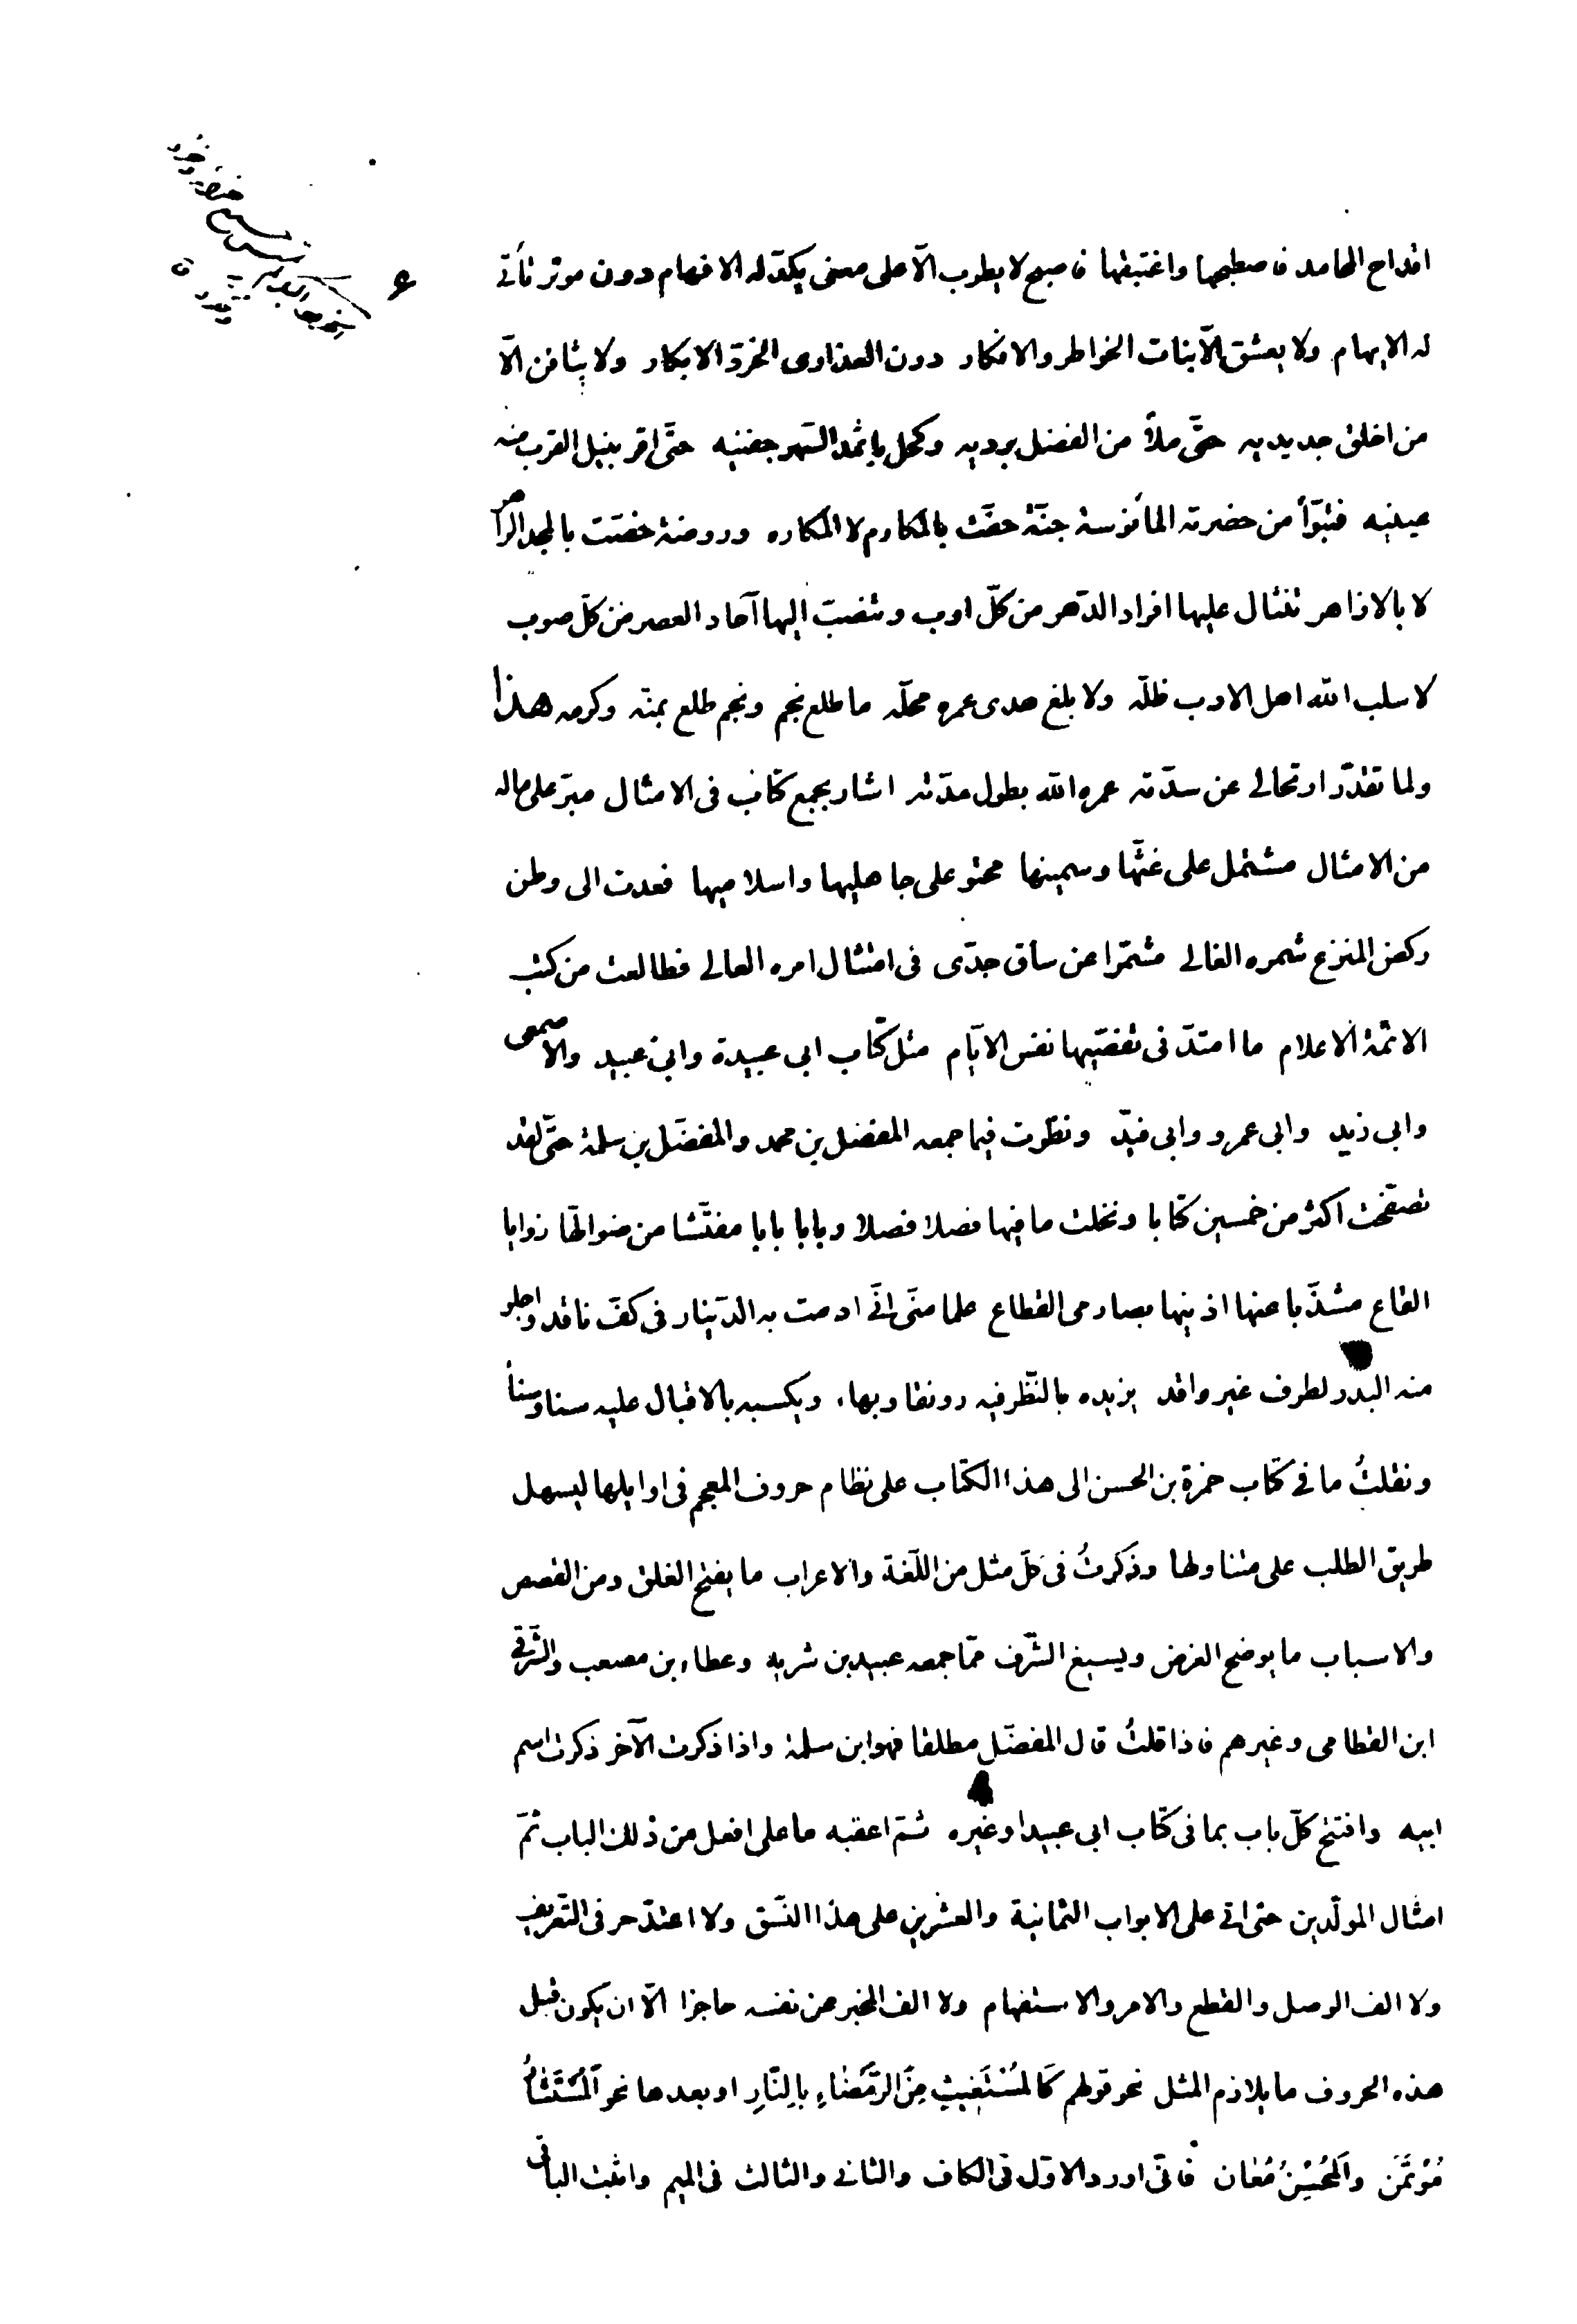 اقداح المحامد فاصطبحها واغتبقها فاصبح لا يطرب الّا على معنى يكدّ له الافهام دون موتر تأتى
له الابهام ولا يعشق الّا بنات الخواطر والافكار دون العذارى الخرّد الابكار ولا يثافن الّا
من اخلق جديديه حتّى ملأ من الفضل برديه وكحل باثمد السّهر جفنيه حتّى اقر بنيل القرب منه
عينيه فتبوّأ من حضرته المأنوسة جنّة حفّت بالمكارم لا المكاره وروضة خصّت بالمجد الزاهر
لا بالازاهر تنثال عليها افراد الدّهر من كلّ اوب وتنصبّ اليها آحاد العصر من كلّ صوب
لا سلب الله اهل الادب ظلّه ولا بلغ هدى عمره محلّه ما طلع نجم ونجم طلع بمنّه وكرمه هذا
ولما تقدّر ارتحالى عن سدّته عمره الله بطول مدّته اشار بجمع كتاب فى الامثال مبرّ على ماله
من الامثال مشتمل على غثّها وسمينها محتو على جاهليها واسلاميها فعدت الى وطن
ركض المنزع شمره الغالى مشمّرا عن ساق جدّى فى امتثال امره العالى فطالعت من كتب
الائمّة الاعلام ما امتدّ فى تقصّيها نفس الايّام مثل كتاب ابى عبيدة وابى عبيد والاصمعى
وابى زيد وابى عمرو وابى فيد ونظرت فيما جمعه المفضل بن محمد والمفضّل بن سلمة حتّى لقد
تصفّحت اكثر من خمسين كتابا ونخلت ما فيها فصلا فصلا وبابا بابا مفتّشا من ضوالّها زوايا
البقاع مشذّبا عنها ابنها بصارمى القطاع علما منّى انّى ادمت به الدّينار فى كفّ ناقد واجلو
منه البدر لطرف غير واقد يزيده بالنّظر فيه رونقا وبهاء ويكسبه بالاقبال عليه سنا وسناء
ونقلتُ ما فى كتاب حمزة بن الحسن الى هذا الكتاب على نظام حروف المعجم فى اوايلها ليسهل
طريق الطلب على متناولها وذكرتُ فى كلّ مثل من اللّغة والاعراب ما يفتح الغلق ومن القصص
والاسباب ما يوضح الغرض ويسيغ الشّرف ممّا جمعه عبيد بن شريه وعطاء بن مصعب والشّرقى
ابن القطامى وغيرهم فاذا قلتُ قال المفضّل مطلقا فهو ابن سلمة واذا ذكرت الآخر ذكرت اسم
ابيه وافتتح كلّ باب بما فى كتاب ابى عبيد او غيره ثمّ اعقبه ما على افعل من ذلك الباب ثمّ
امثال المولّدين حتى آتى على الابواب الثمانية والعشرين على هذا النّسق ولا اعتدّ حرفى التّعريف
ولا الف الوصل والقطع والامر والاستفهام ولا الف المخبر عن نفسه حاجزا الّا ان يكون قبل
هذه الحروف ما يلازم المثل نحو قولهم كَالمُسْتَغِيثِ مِنَ الرَّمْضَاءِ بِالنَّارِ او بعدها نحو اَلمُسْتَشَارُ
مُؤْتَمَن وَاَلمُحْسِنُ مُعَان فانّى اورد الاوّل فى الكاف والثانى والثالث فى الميم واثبت الباقى